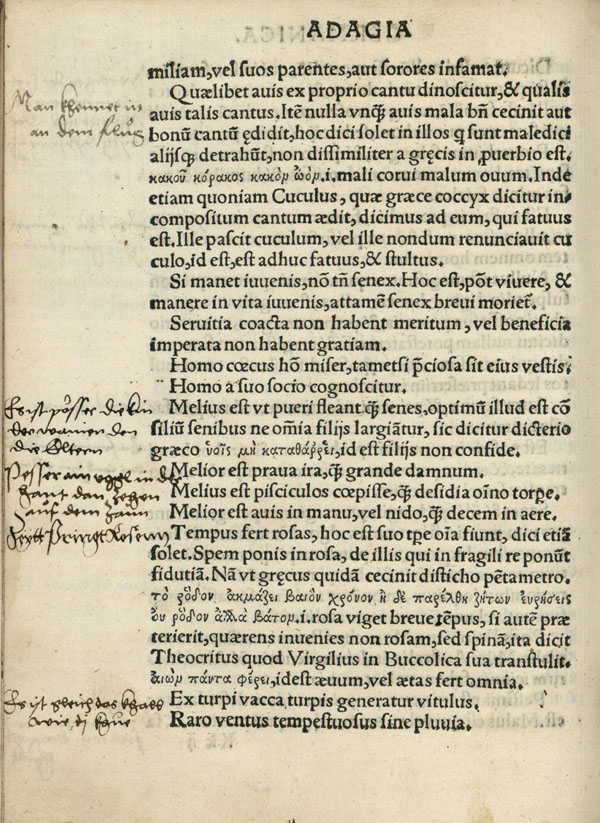 ADAGIA
miliam, vel suos parentes, aut sorores infamat.
Quælibet auis ex proprio cantu dinoscitur, & qualis
auis talis cantus. Itē nulla vnꝗ̄ auis mala bn̄ cecinit aut
bonū cantū ędidit, hoc dici solet in illos q̄ sunt maledici
alijsꝗ; detrahūt, non dissimiliter a gręcis in ꝓuerbio est.
κακοῦ κόρακος κακὸμ ὠόμ .i. mali corui malum ouum. Inde
etiam quoniam Cuculus, quæ græce coccyx dicitur in⸗
compositum cantum ædit, dicimus ad eum, qui fatuus
est. Ille pascit cuculum, vel ille nondum renunciauit cu
culo, id est, est adhuc fatuus, & stultus.
Si manet iuuenis, nō tn̄ senex. Hoc est, pōt viuere, &
manere in vita iuuenis, attamē senex breui moriet̄.
Seruitia coacta non habent meritum, vel beneficia
imperata non habent gratiam.
Homo cœcus hō miser, tametsi p̄ciosa sit eius vestis.
Homo a suo socio cognoscitur.
Melius est vt pueri fleant ꝗ̄ senes, optimū illud est cō
siliū senibus ne om̄ia filijs largiātur, sic dicitur dicterio
græco ὑοῖς μὴ καταθάῤῥει, id est filijs non confide.
Melior est praua ira, ꝗ̄ grande damnum.
Melius est pisciculos cœpisse, ꝗ̄ desidia oīno torꝑe.
Melior est auis in manu, vel nido, ꝗ̄ decem in aere.
Tempus fert rosas, hoc est suo tꝑe oīa fiunt, dici etiā
solet. Spem ponis in rosa, de illis qui in fragili re ponūt
fidutiā. Nā vt gręcus quidā cecinit disticho pētametro.
τὸ ῥόδον ἀκμάζει βαιὸν χρόνον ἢ δὲ παρέλθῃ ζητῶν εὑρήσεις
οὐ ῥόδον ἀλλὰ βάτομ .i. rosa viget breue tēpus, si autē præ
terierit, quærens inuenies non rosam, sed spinā, ita dicit
Theocritus quod Virgilius in Buccolica sua transtulit.
αἰὼμ πάντα φέρει, id est æuum, vel ætas fert omnia.
Ex turpi vacca turpis generatur vitulus.
Raro ventus tempestuosus sine pluuia.
Man khennet in
an dem flug
Es ist pösser die kin
der wainen den
die Eltern
Pesser ain vogl in der
hant dan zehen
auf dem zaun
Zeytt Pringt Rosenn
Es ist gleich das khalb
wie di khue